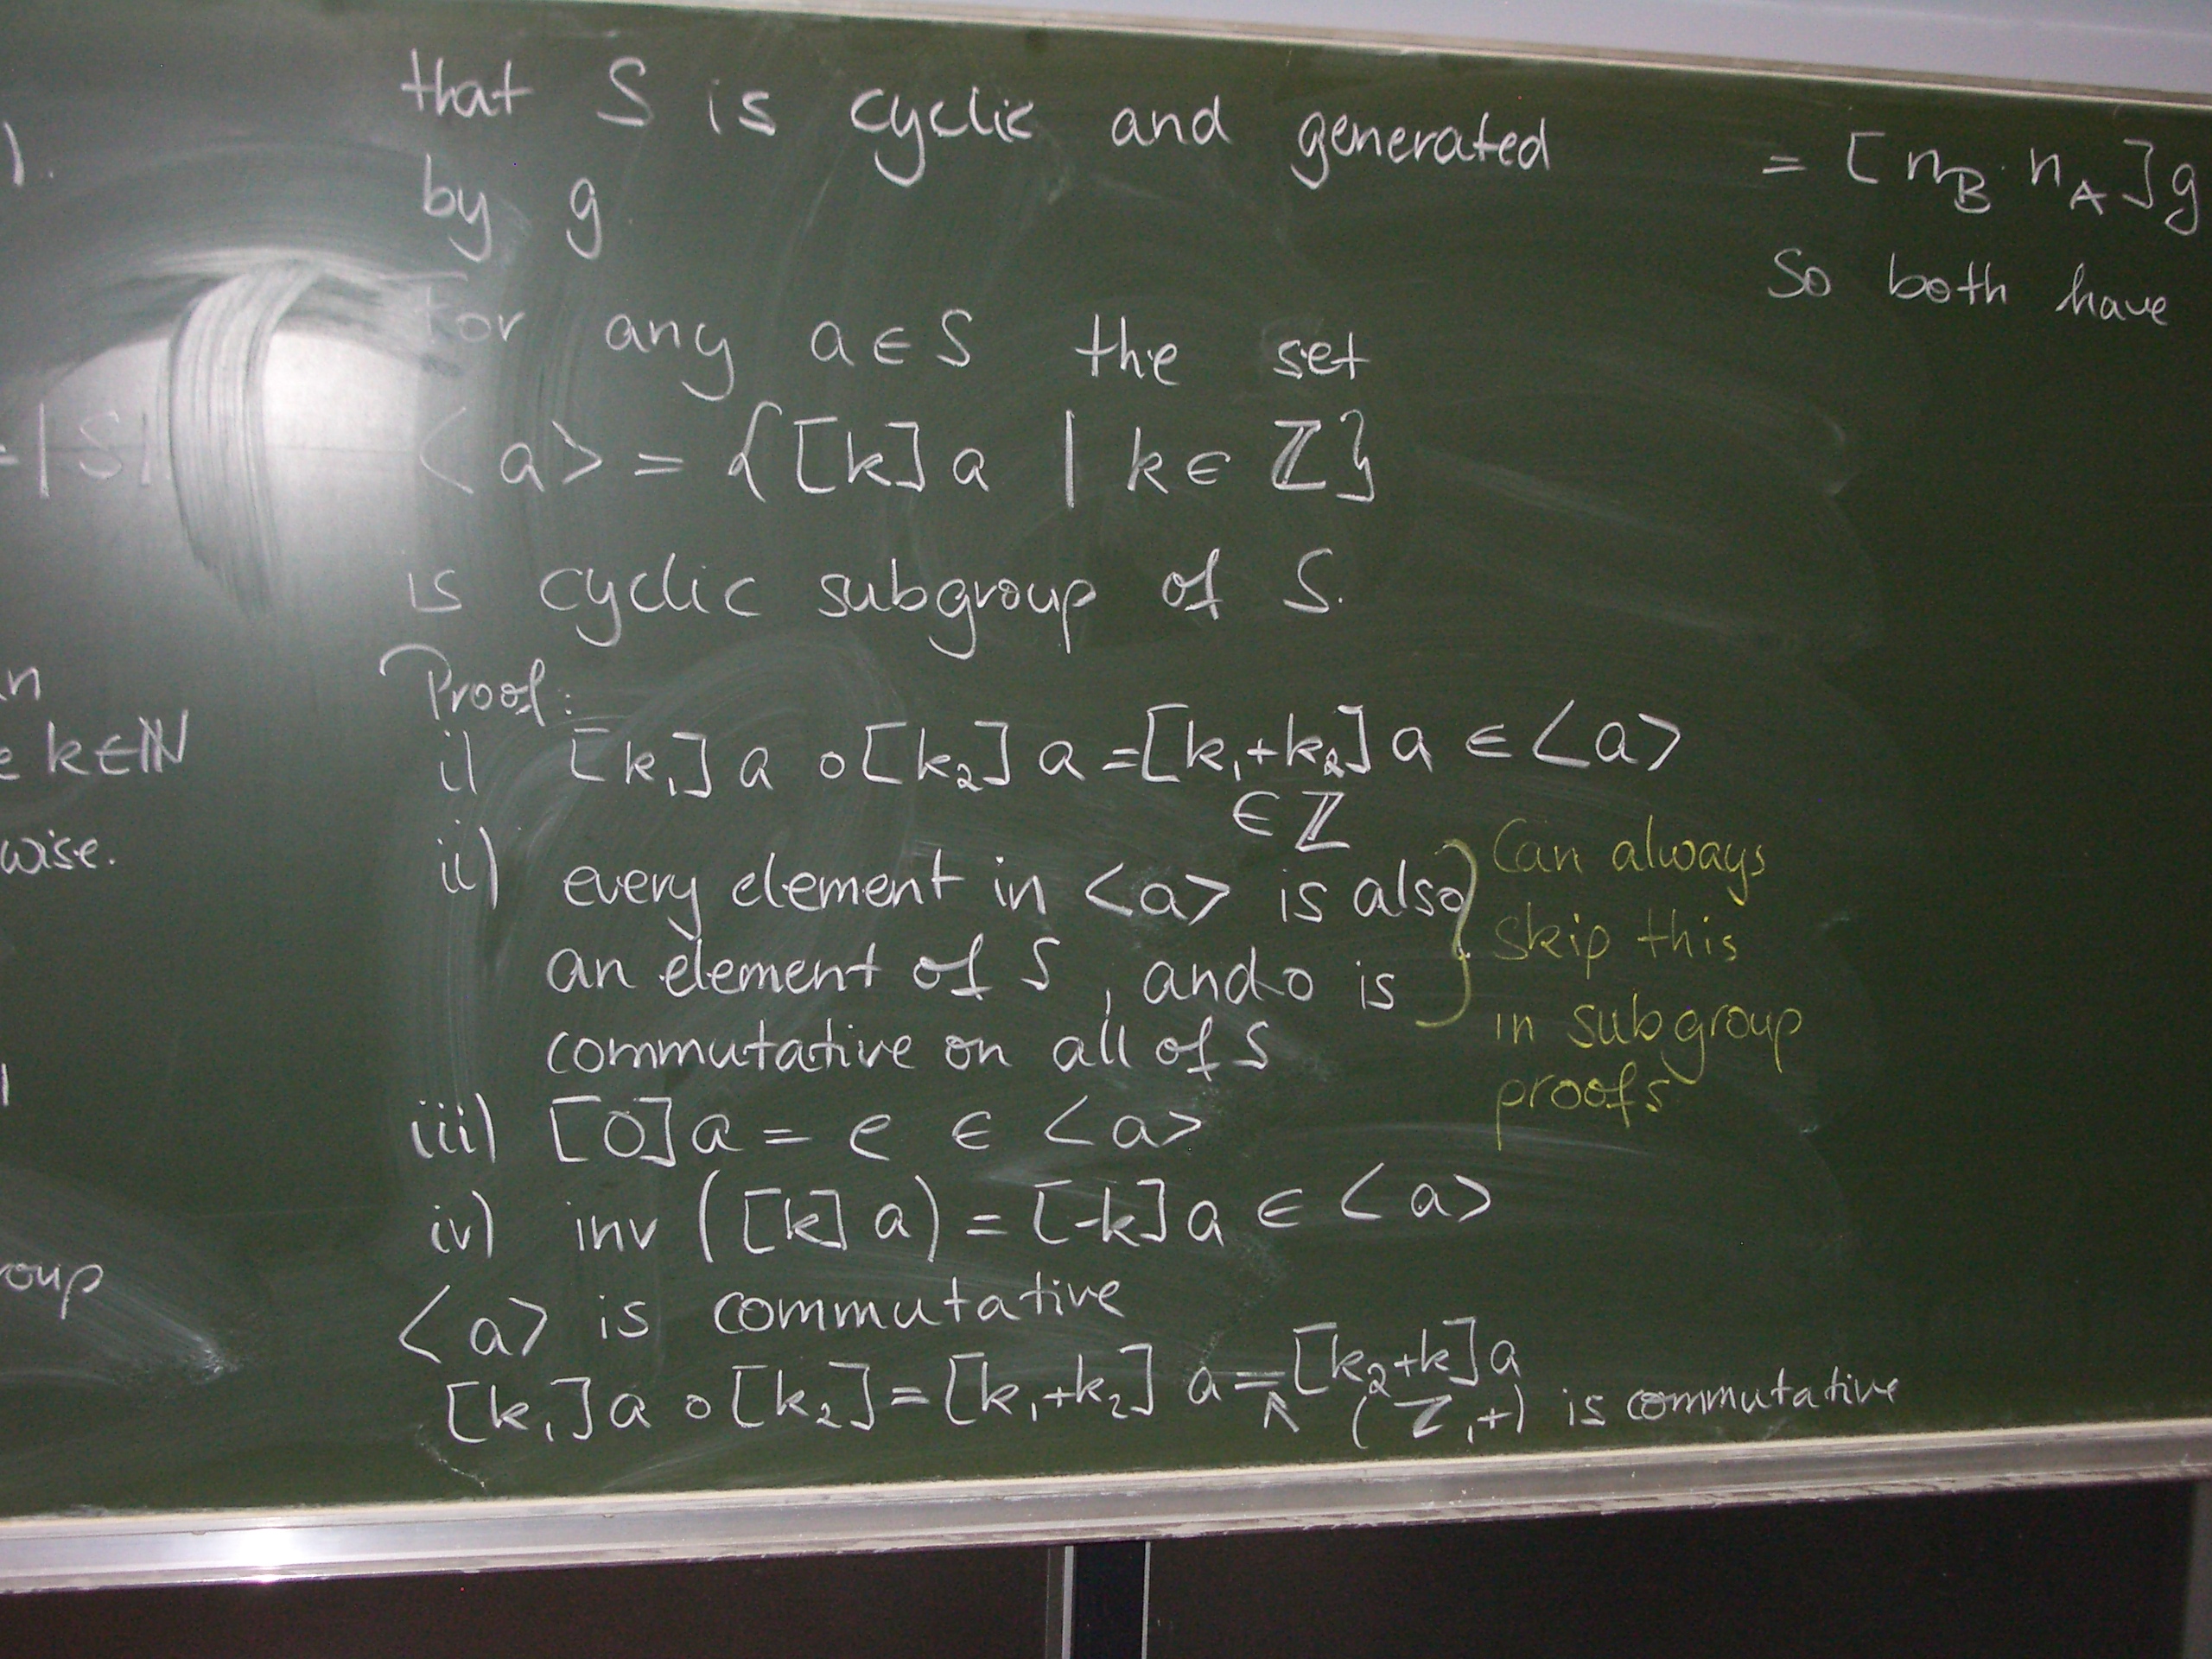 ).
-|S|
n
e k∈ℕ
wise.
oup
that S is cyclic and generated
by g
For any a∈S the set
<a> = {[k]a | k∈ ℤ}
is cyclic subgroup of S.
Proof:
i) [k₁]a ∘ [k₂]a = [k₁+k₂]a ∈ <a>
∈ ℤ
ii) every element in <a> is also
an element of S, and ∘ is
commutative on all of S
Can always
skip this
in subgroup
proofs
iii) [0]a = e ∈ <a>
iv) inv ([k]a) = [-k]a ∈ <a>
<a> is commutative
[k₁]a ∘ [k₂] = [k₁+k₂] a = [k₂+k]a
↑ (ℤ,+) is commutative
= [n_B · n_A]g
So both have